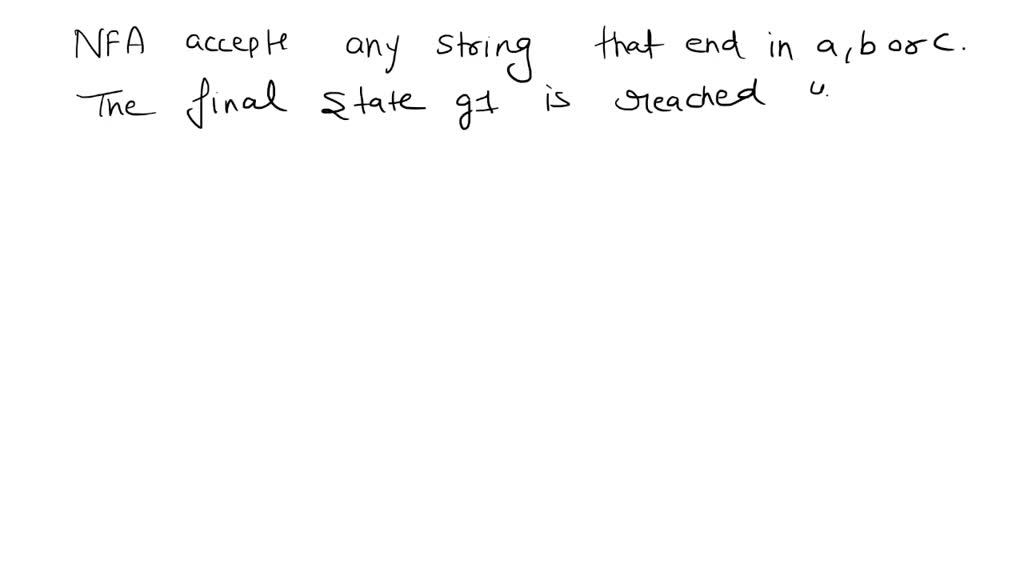 NFA accepte any string that end in a, b or c.
The final state q1 is reached